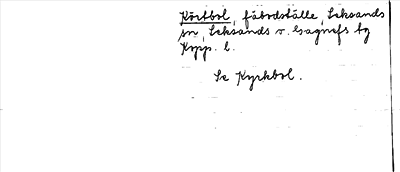 Körtbol, fäbodställe, Leksands
sn, Leksands o. Gagnefs tg
Kopp. l.
Se Kyrkbol.